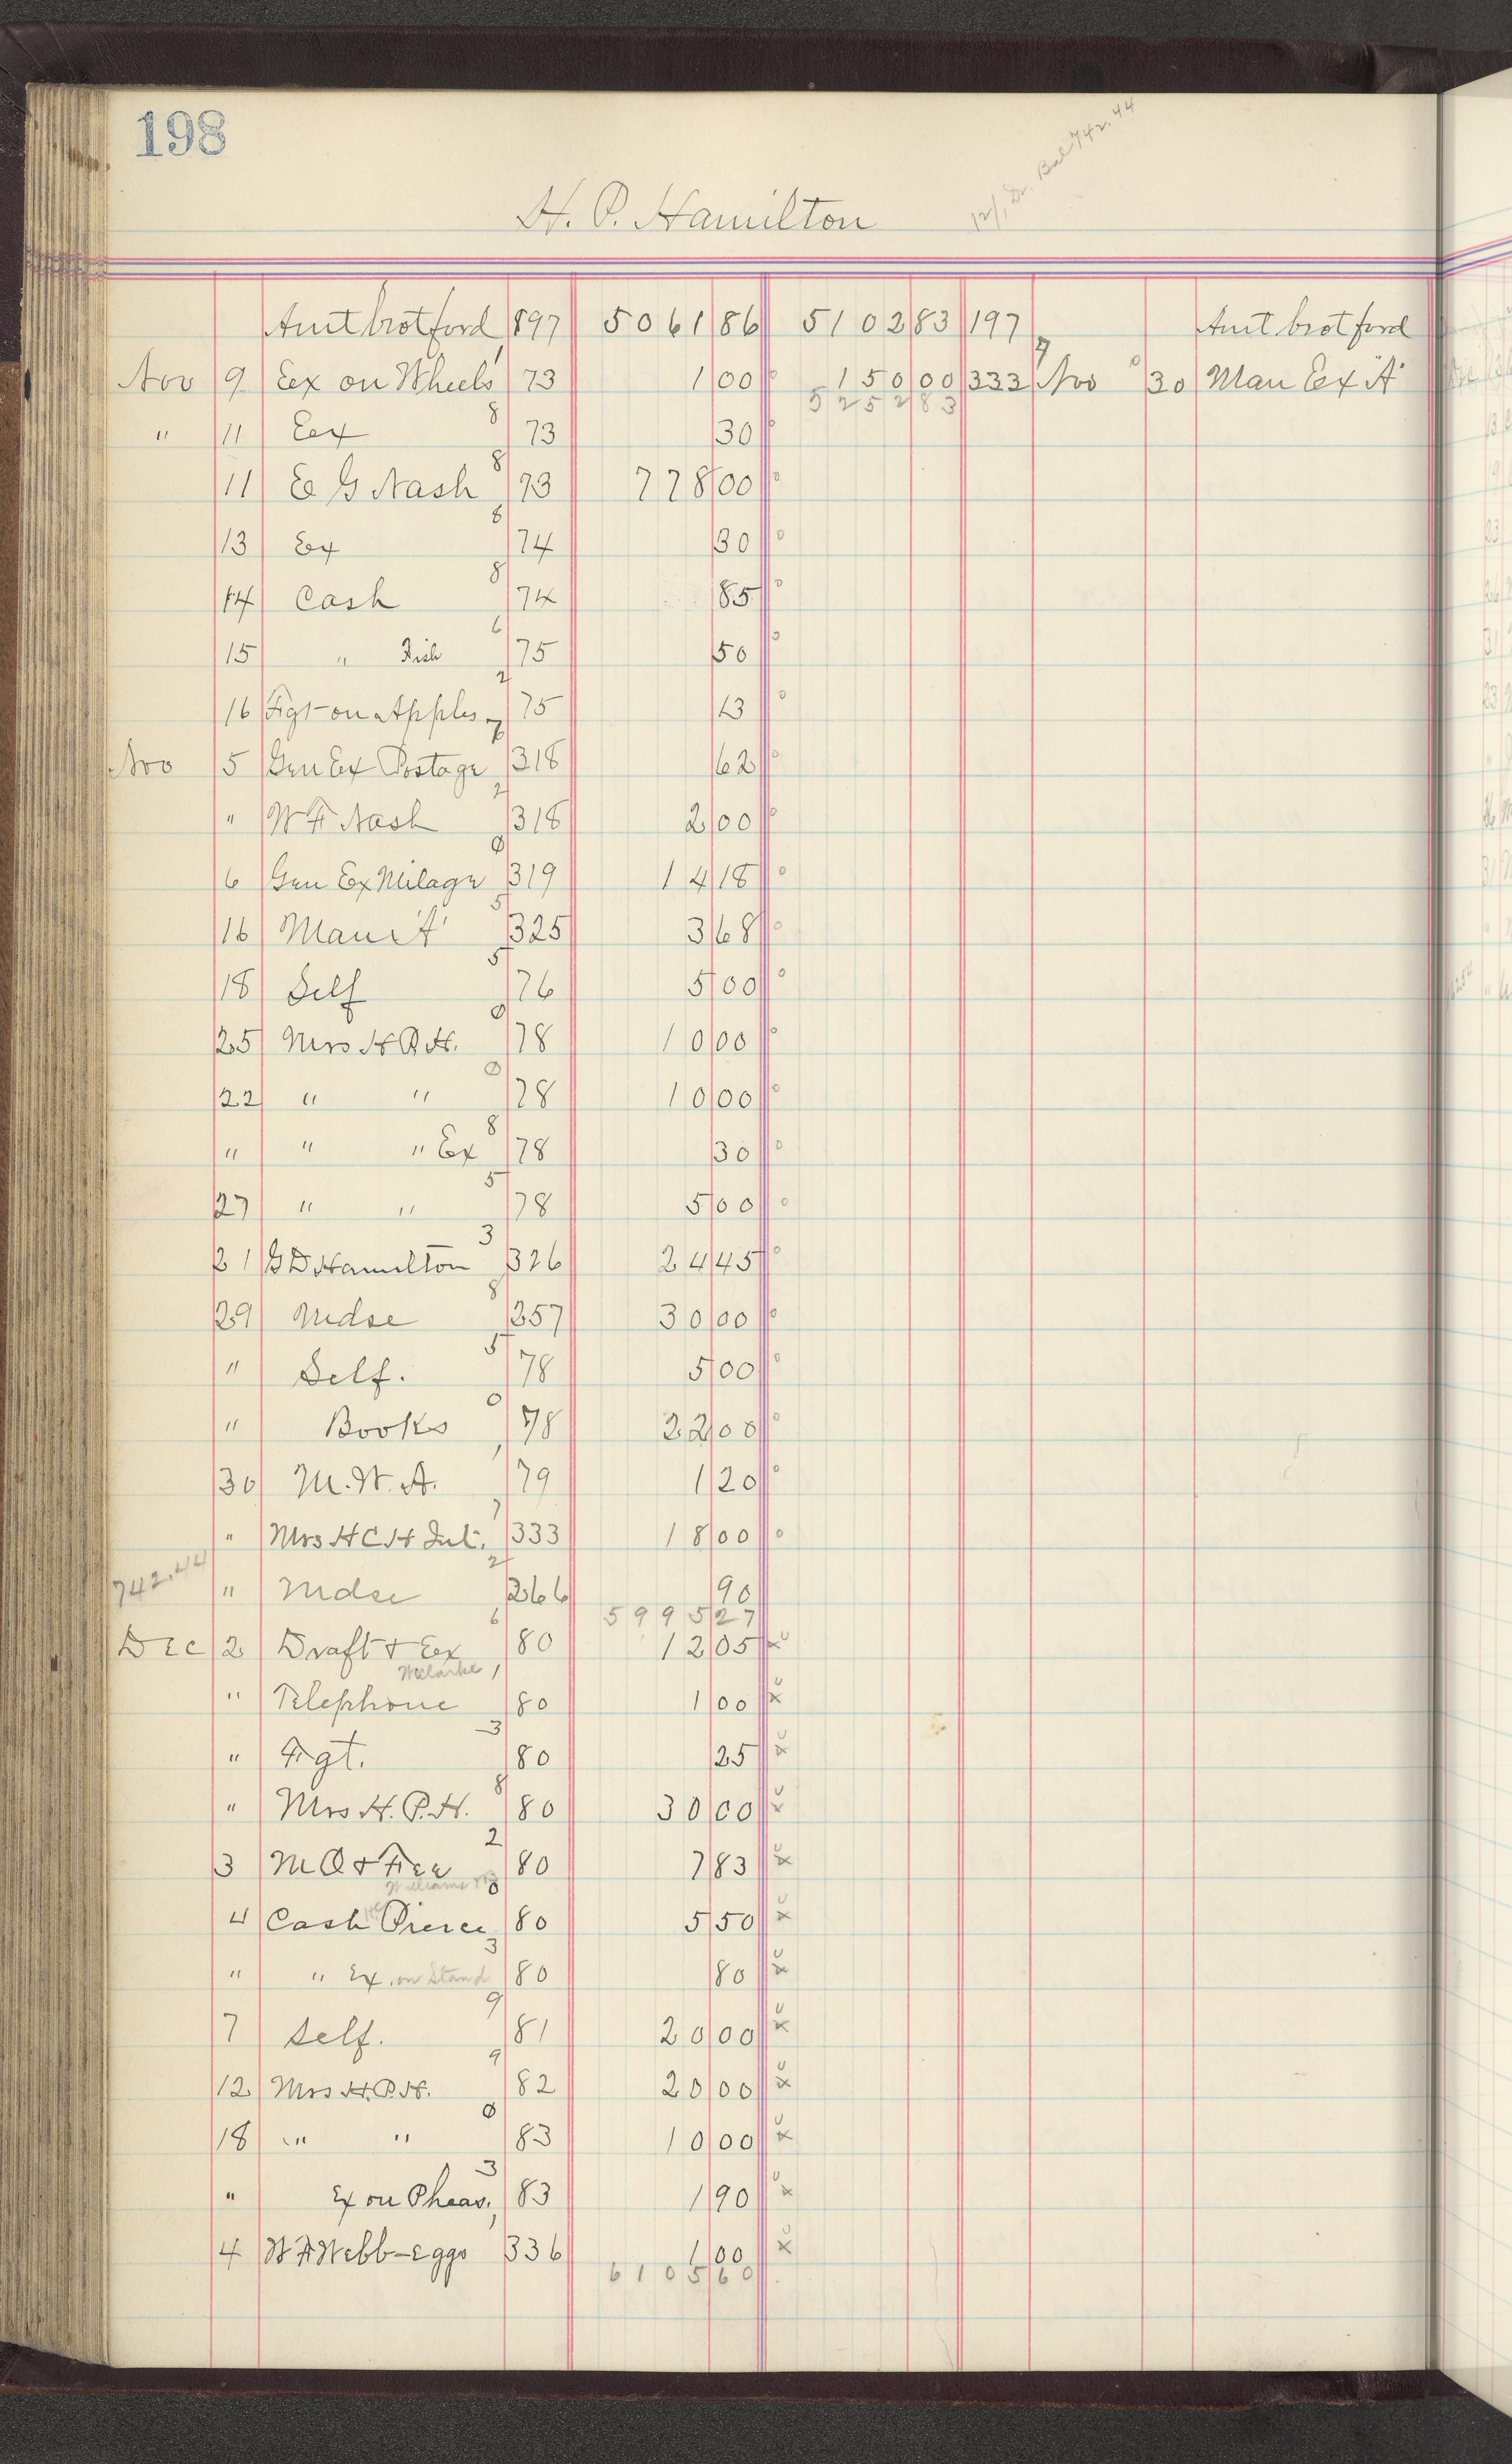 198
12/1 Dr. Bal 742.44
H. P. Hamilton
Amt brot ford 197 5061 86 5102 83 197 Amt brot ford
Nov 9 Ex on Wheels 1 73 1 00 150 00 333 7 Nov 30 Man Ex "A"
5252 83
" 11 Ex 8 73 30
11 E G Nash 8 73 778 00
13 Ex 8 74 30
14 Cash 8 74 85
15 " Fish 6 75 50
16 Frgt on Apples 2 75 13
Nov 5 Gen Ex Postage 318 62
" W F Nash 2 318 2 00
6 Gen Ex Milage 0 319 14 18
16 Man "A" 5 325 3 68
18 Self 5 76 5 00
25 Mrs H P H. 0 78 10 00
22 " " 0 78 10 00
" " " Ex 8 78 30
27 " " 5 78 5 00
21 G D Hamilton 3 326 24 45
29 Mdse 8 257 30 00
" Self. 5 78 5 00
" Books 0 78 22 00
30 M. W. A. 1 79 1 20
" Mrs H C H Int. 7 333 18 00
742.44 " Mdse 2 266 90
5995 27
Dec 2 Draft & Ex 6 80 12 05
" Telephone 1 80 1 00
" Frgt. 3 80 25
" Mrs H. P. H. 8 80 30 00
3 M O & Fee 2 80 7 83
Williams
4 Cash Pierce 0 80 5 50
" " Ex. on Stand 3 80 80
7 Self. 9 81 20 00
12 Mrs H. P. H. 9 82 20 00
18 " " 0 83 10 00
" Ex on Pheas. 3 83 1 90
4 W F Webb - Eggs 1 336 1 00
6105 60